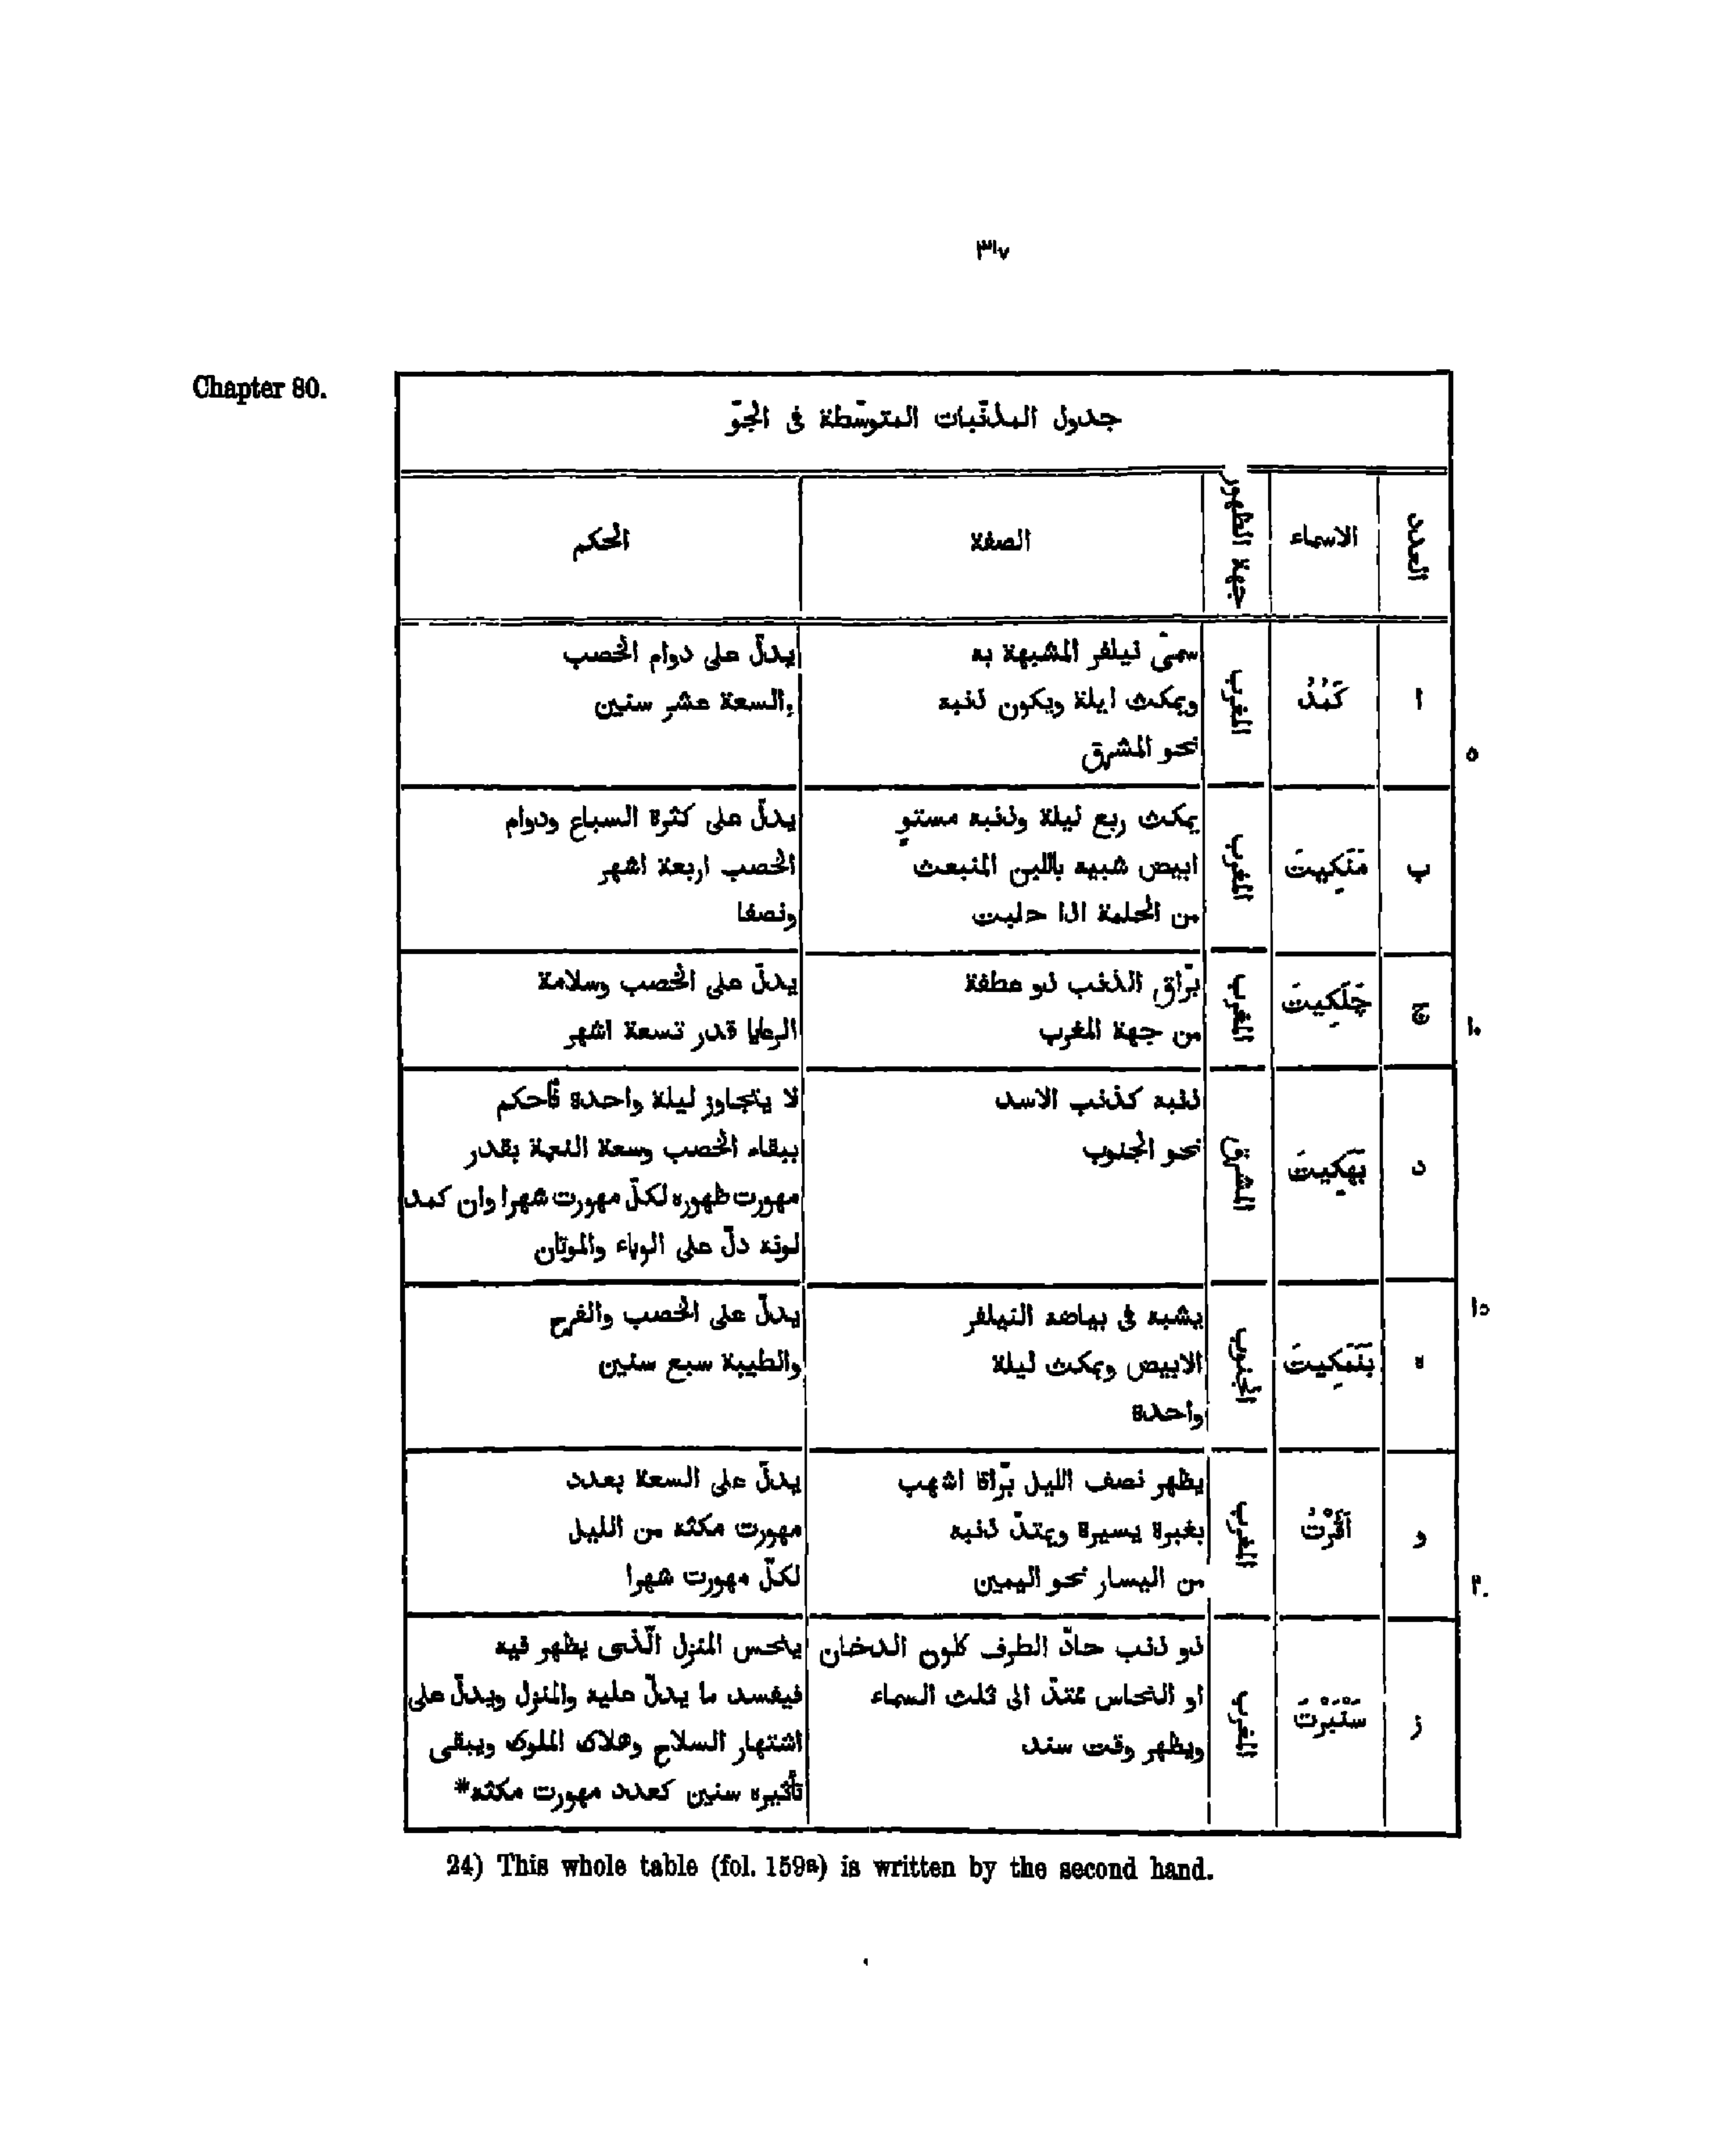 ٣١٧
Chapter 80.
جدول المذنّبات المتوسّطة فى الجوّ
العدد
الاسماء
جهة الظهور
الصفة
الحكم
ا
كَمُدُ
المغرب
سمّى نيلفر المشبهة به
ويمكث ليلة ويكون ذنبه
نحو المشرق
يدلّ على دوام الخصب
والسعة عشر سنين
٥
ب
مَنَكِيتَ
المغرب
يمكث ربع ليلة وذنبه مستوٍ
ابيض شبيه باللبن المنبعث
من الحلمة اذا حلبت
يدلّ على كثرة السباع ودوام
الخصب اربعة اشهر
ونصفا
ج
جَلَكِيتَ
المغرب
برّاق الذنب ذو عطفة
من جهة المغرب
يدلّ على الخصب وسلامة
الرعايا قدر تسعة اشهر
١٠
د
بَهَكِيتَ
المشرق
ذنبه كذنب الاسد
نحو الجنوب
لا يتجاوز ليلة واحدة فٱحكم
ببقاء الخصب وسعة النعمة بقدر
مهورت ظهوره لكلّ مهورت شهرا وان كمد
لونه دلّ على الوباء والموتان
ه
بَنَمَكِيتَ
الجنوب
يشبه فى بياضه النيلفر
الابيض ويمكث ليلة
واحدة
يدلّ على الخصب والفرح
والطيبة سبع سنين
١٥
و
آفَرْتُ
المغرب
يظهر نصف الليل برّاقا اشهب
بغبرة يسيرة ويمتدّ ذنبه
من اليسار نحو اليمين
يدلّ على السعة بعدد
مهورت مكثه من الليل
لكلّ مهورت شهرا
٢٠
ز
سَنْبَرْتَ
المغرب
ذو ذنب حادّ الطرف كلون الدخان
او النحاس ممتدّ الى ثلث السماء
ويظهر وقت سند
ينحس المنزل الّذى يظهر فيه
فيفسد ما يدلّ عليه والمنزل ويدلّ على
اشتهار السلاح وهلاك الملوك ويبقى
تأثيره سنين كعدد مهورت مكثه*
24) This whole table (fol. 159a) is written by the second hand.